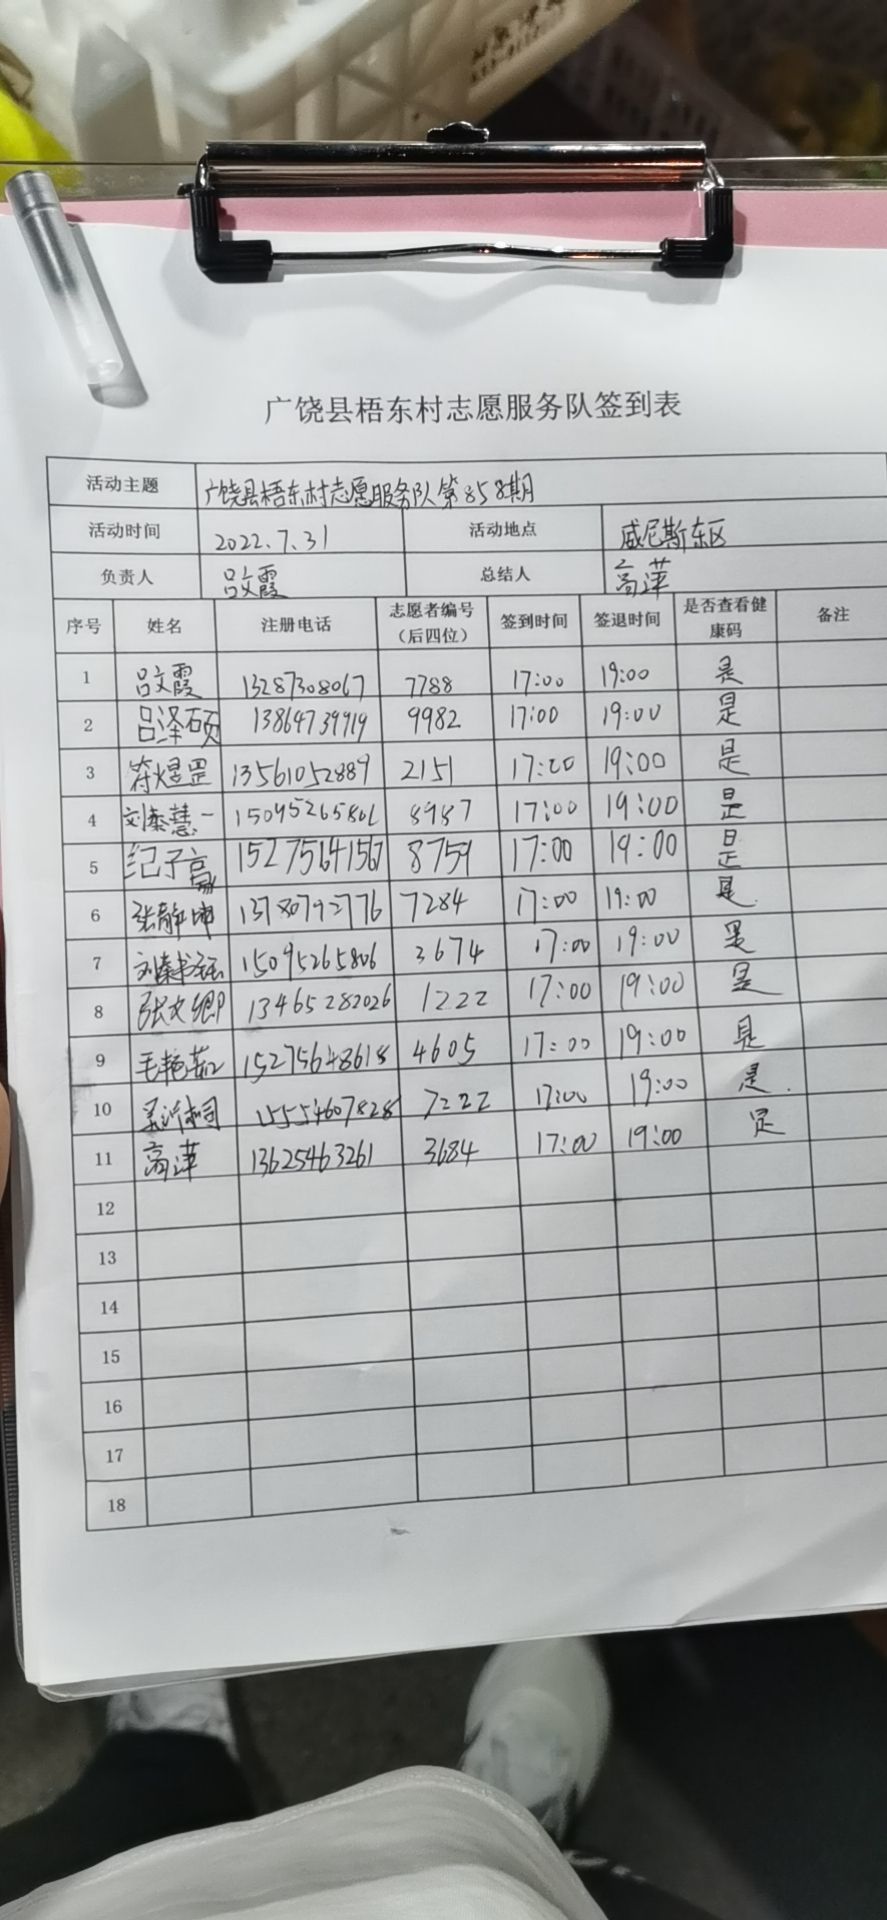 广饶县梧东村志愿服务队签到表
活动主题 广饶县梧东村志愿服务队第858期
活动时间 2022.7.31 活动地点 威尼斯东区
负责人 吕文霞 总结人 高萍
序号 姓名 注册电话 志愿者编号（后四位） 签到时间 签退时间 是否查看健康码 备注
1 吕文霞 13287308067 7788 17:00 19:00 是
2 吕泽硕 13864739919 9982 17:00 19:00 是
3 符煜罡 13561052889 2151 17:00 19:00 是
4 刘秦慧一 15095265806 8987 17:00 19:00 是
5 纪子高 15275641567 8759 17:00 19:00 是
6 张静坤 13780792776 7284 17:00 19:00 是
7 刘秦 15095265806 3674 17:00 19:00 是
8 张文卿 13465282026 1222 17:00 19:00 是
9 毛艳茹 15275648618 4605 17:00 19:00 是
10 15554607828 7222 17:00 19:00 是.
11 高萍 13625463261 3684 17:00 19:00 是
12
13
14
15
16
17
18